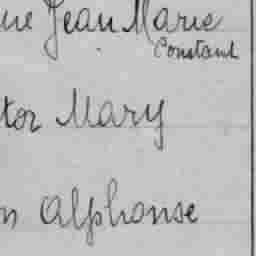 ue Jean Marie
Constant
tor Mary
n Alphonse